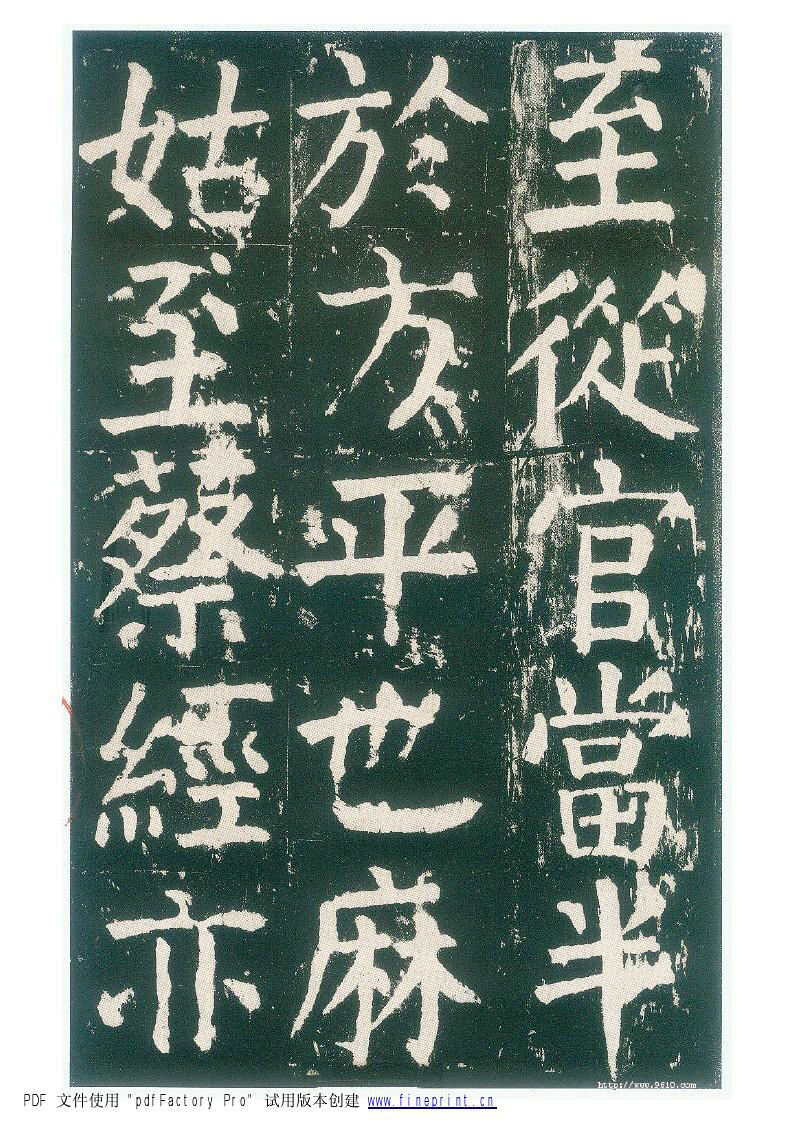 至從官當半
於方平也麻
姑至蔡經亦
http://www.9610.com
PDF 文件使用 "pdfFactory Pro" 试用版本创建 www.fineprint.cn